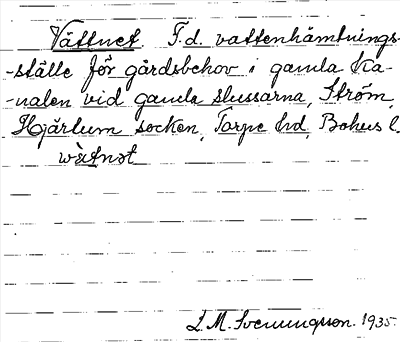 Vättnet F.d. vattenhämtnings-
-ställe för gårdsbehov i gamla Ka-
-nalen vid gamla slussarna, Ström,
Hjärtum socken, Torpe hd, Bohus l.
wàtnət
S. M. Svenungsson. 1935.